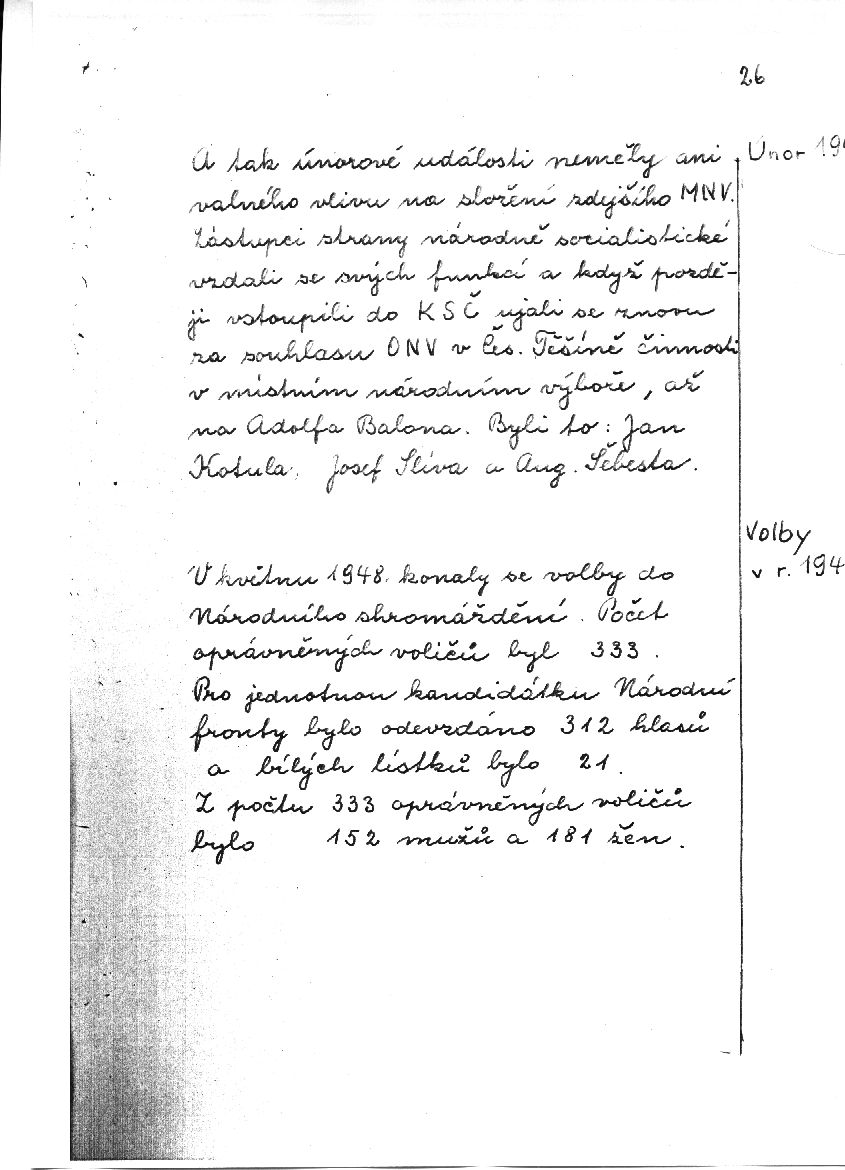 26
A tak únorové události neměly ani
valného vlivu na složení zdejšího MNV.
Zástupci strany národně socialistické
vzdali se svých funkcí a když pozdě-
ji vstoupili do KSČ ujali se znovu
za souhlasu ONV v Čes. Těšíně činnosti
v místním národním výboře, až
na Adolfa Balona. Byli to: Jan
Kotula, Josef Slíva a Aug. Šebesta.
Únor 19
V květnu 1948. konaly se volby do
Národního shromáždění. Počet
oprávněných voličů byl 333.
Pro jednotnou kandidátku Národní
fronty bylo odevzdáno 312 hlasů
a bílých lístků bylo 21.
Z počtu 333 oprávněných voličů
bylo 152 mužů a 181 žen.
Volby
v r. 194